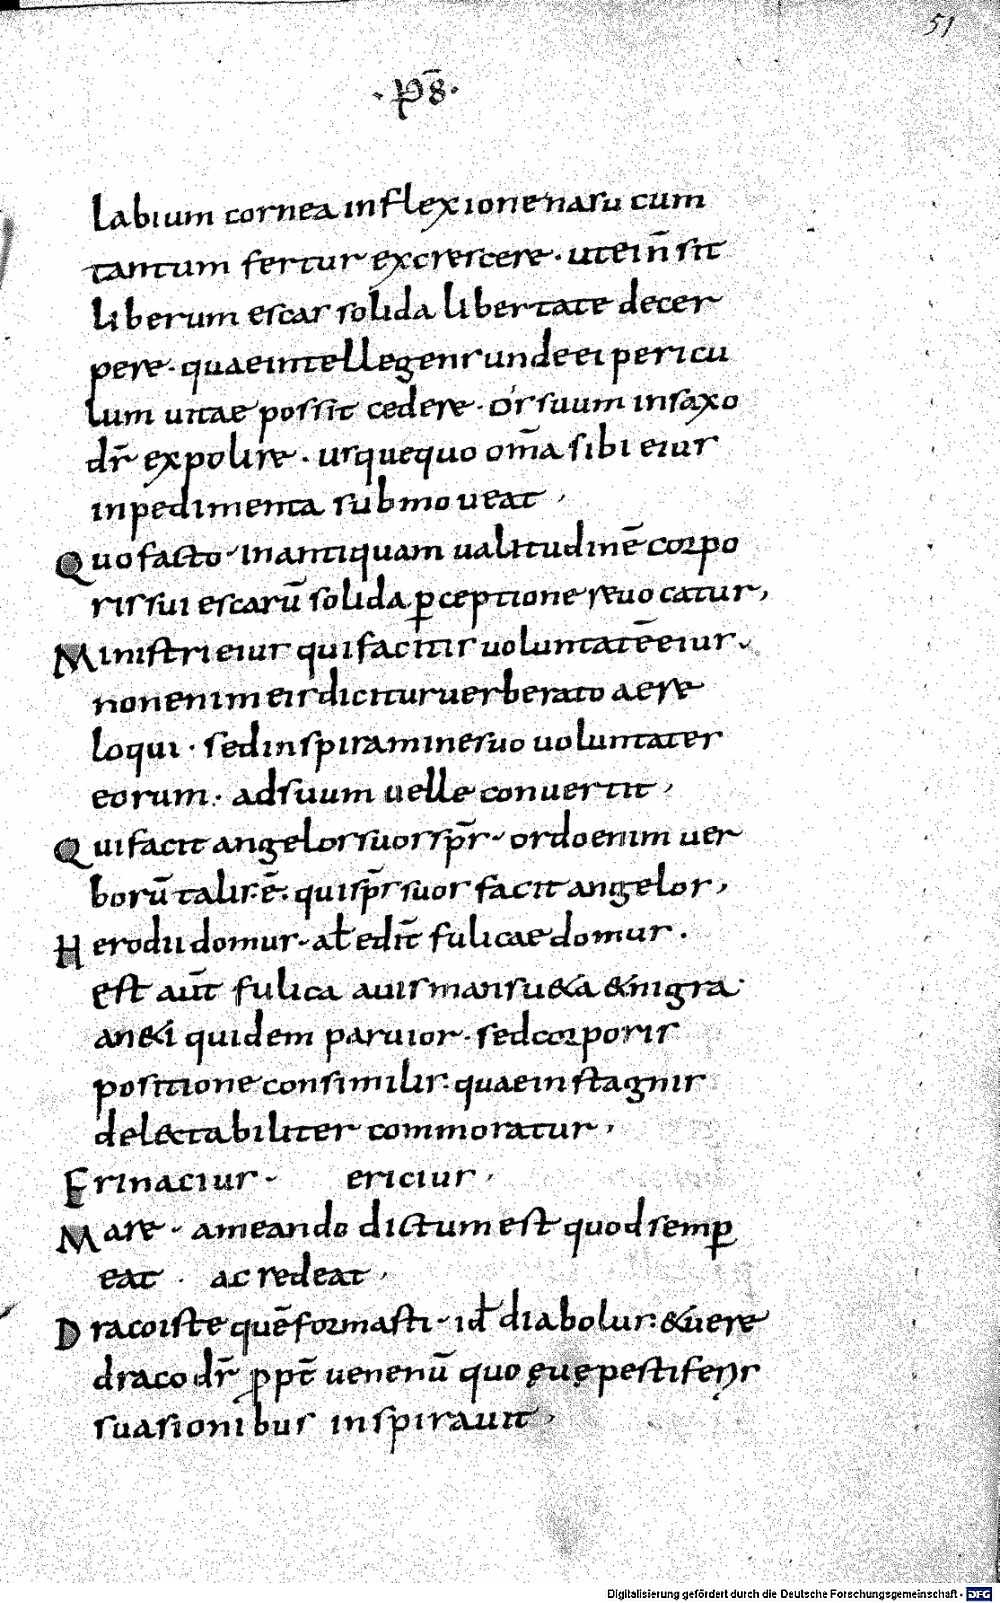 51
· p̄s ·
labium cornea inflexione nasu cum
tantum fertur excrescere · ut ei n̄ sit
liberum escas solida libertate decer
pere · quae intellegens unde ei pericu
lum uitae possit cedere · os suum in saxo
dr̄ expolire · usquequo om̄a sibi eius
inpedimenta submoueat,
Quo facto · in antiquam ualitudinē corpo
ris sui escarū solida ꝑceptione reuocatur,
Ministri eius qui facitis uoluntatē eius ·
non enim eis dicitur uerberato aere
loqui · sed inspiramine suo uoluntates
eorum · ad suum uelle conuertit,
Qui facit angelos suos sp̄s · ordo enim uer
borū talis ē · qui sp̄s suos facit angelos,
Herodii domus · aƚ edit̄ fulicae domus ·
est aut̄ fulica auis mansu&a & nigra ·
an&i quidem paruior · sed corporis
positione consimilis: quae in stagnis
del&tabiliter commoratur,
Erinacius · ericius,
Mare · a meando dictum est quod semꝑ
eat · ac redeat,
Draco iste quē formasti · id ̵ diabolus: & uere
draco dr̄ ꝓpt̄ uenenū quo ęuę pestiferis
suasionibus inspirauit,
Digitalisierung gefördert durch die Deutsche Forschungsgemeinschaft - DFG